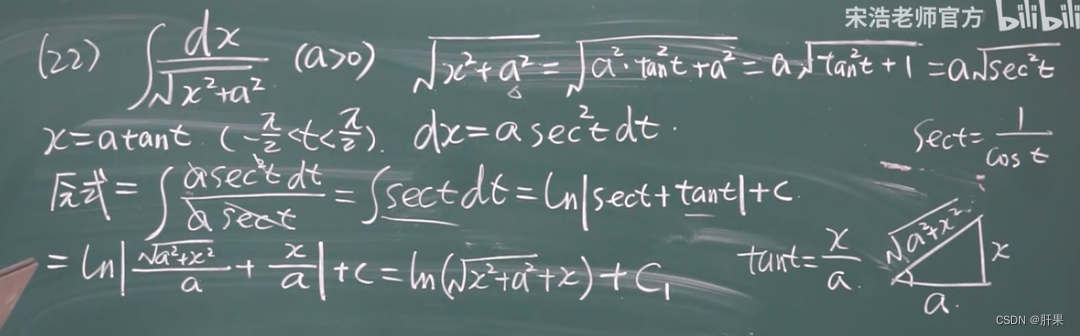 宋浩老师官方 bilibili
(22) ∫ dx/√(x²+a²) (a>0) √(x²+a²) = √(a²·tan²t+a²) = a√(tan²t+1) = a√(sec²t)
x=atant (-π/2<t<π/2). dx=asec²t dt. sect=1/cos t
原式= ∫ asec²t dt / a sect = ∫sect dt = ln|sect+tant|+C.
= ln|√(a²+x²)/a + x/a| +C = ln(√(x²+a²)+x)+C₁ tant=x/a. √(a²+x²) x
a.
CSDN @肝果